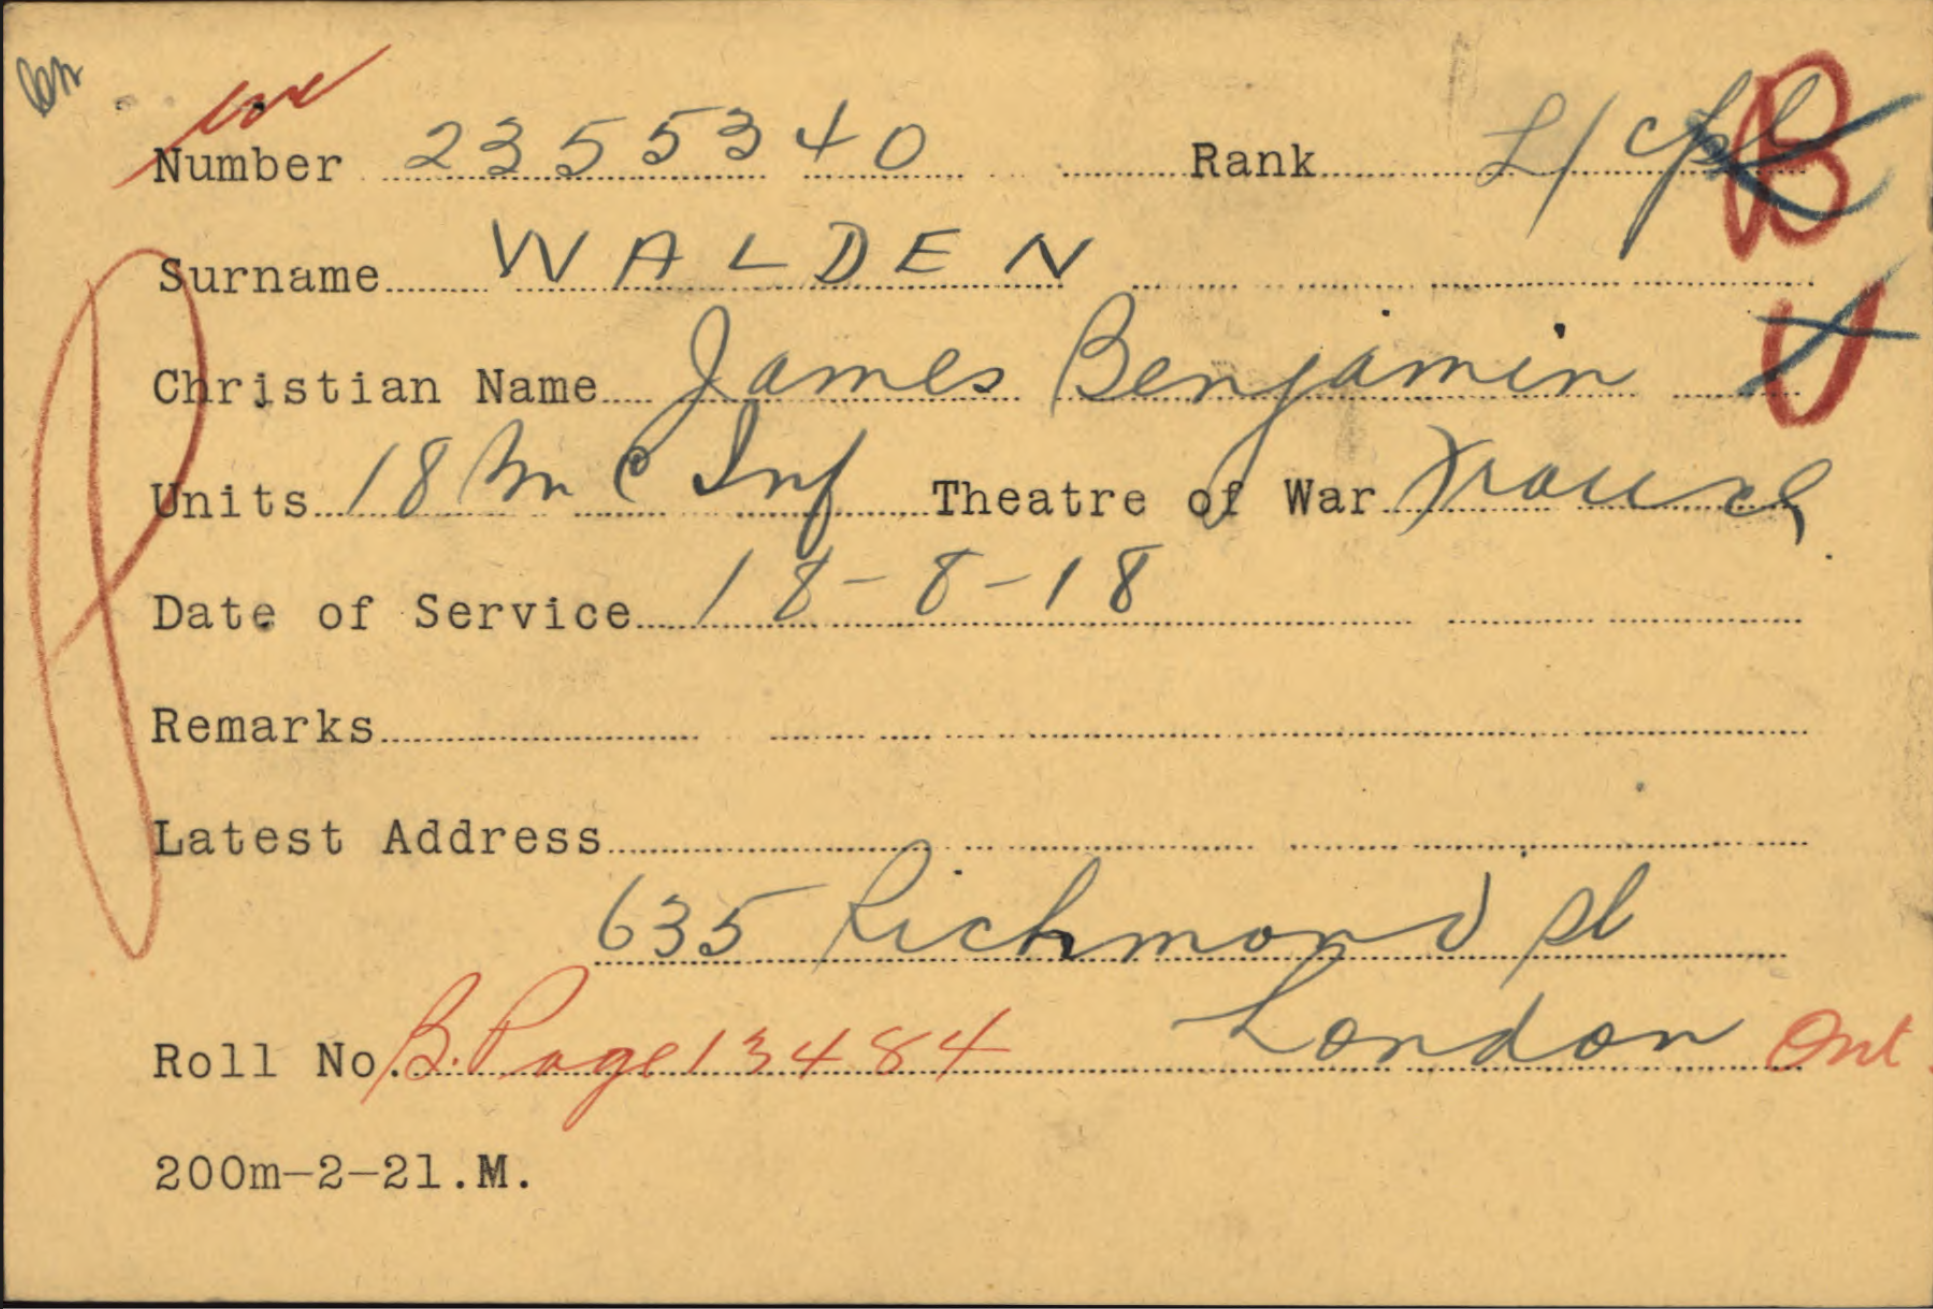 Number 2355340 Rank L/Cpl B
Surname WALDEN
Christian Name James Benjamin V
Units 18 Bn C Inf Theatre of War France
Date of Service 18-8-18
Remarks
Latest Address
635 Richmond St
London Ont
Roll No. B. Page 13484
200m-2-21.M.